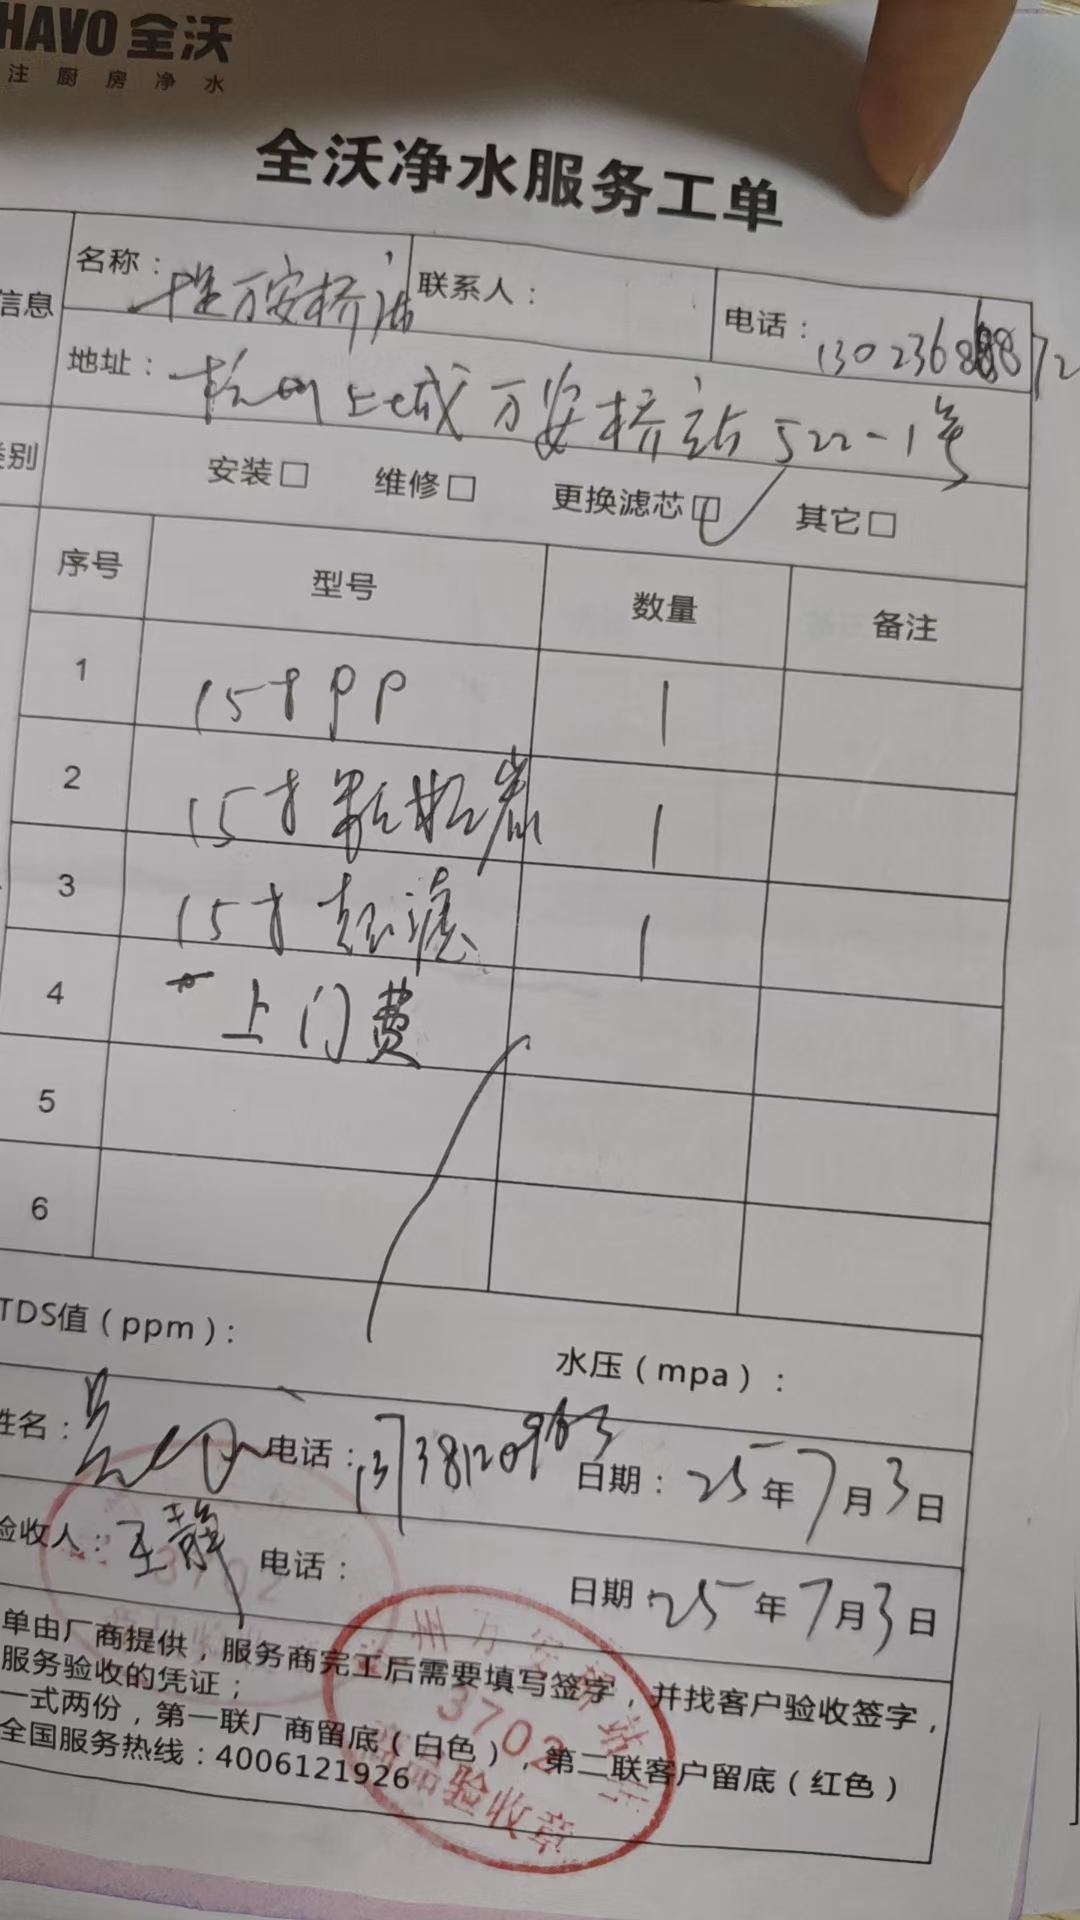 HAVO 全沃
注厨房净水
全沃净水服务工单
信息
名称： 万安桥店 联系人： 电话：
地址：杭州上城万安桥站522-1号
类别 安装□ 维修□ 更换滤芯☑ 其它□
序号 型号 数量 备注
1 15寸PP 1
2 15寸颗粒炭 1
3 15寸超滤 1
4 上门费
5
6
TDS值（ppm）： 水压（mpa）：
姓名： 电话： 日期：25年7月3日
验收人：王静 电话： 日期 25年7月3日
单由厂商提供，服务商完工后需要填写签字，并找客户验收签字，
服务验收的凭证；
一式两份，第一联厂商留底（白色），第二联客户留底（红色）
全国服务热线：4006121926
州万安桥站
3702
商品验收章